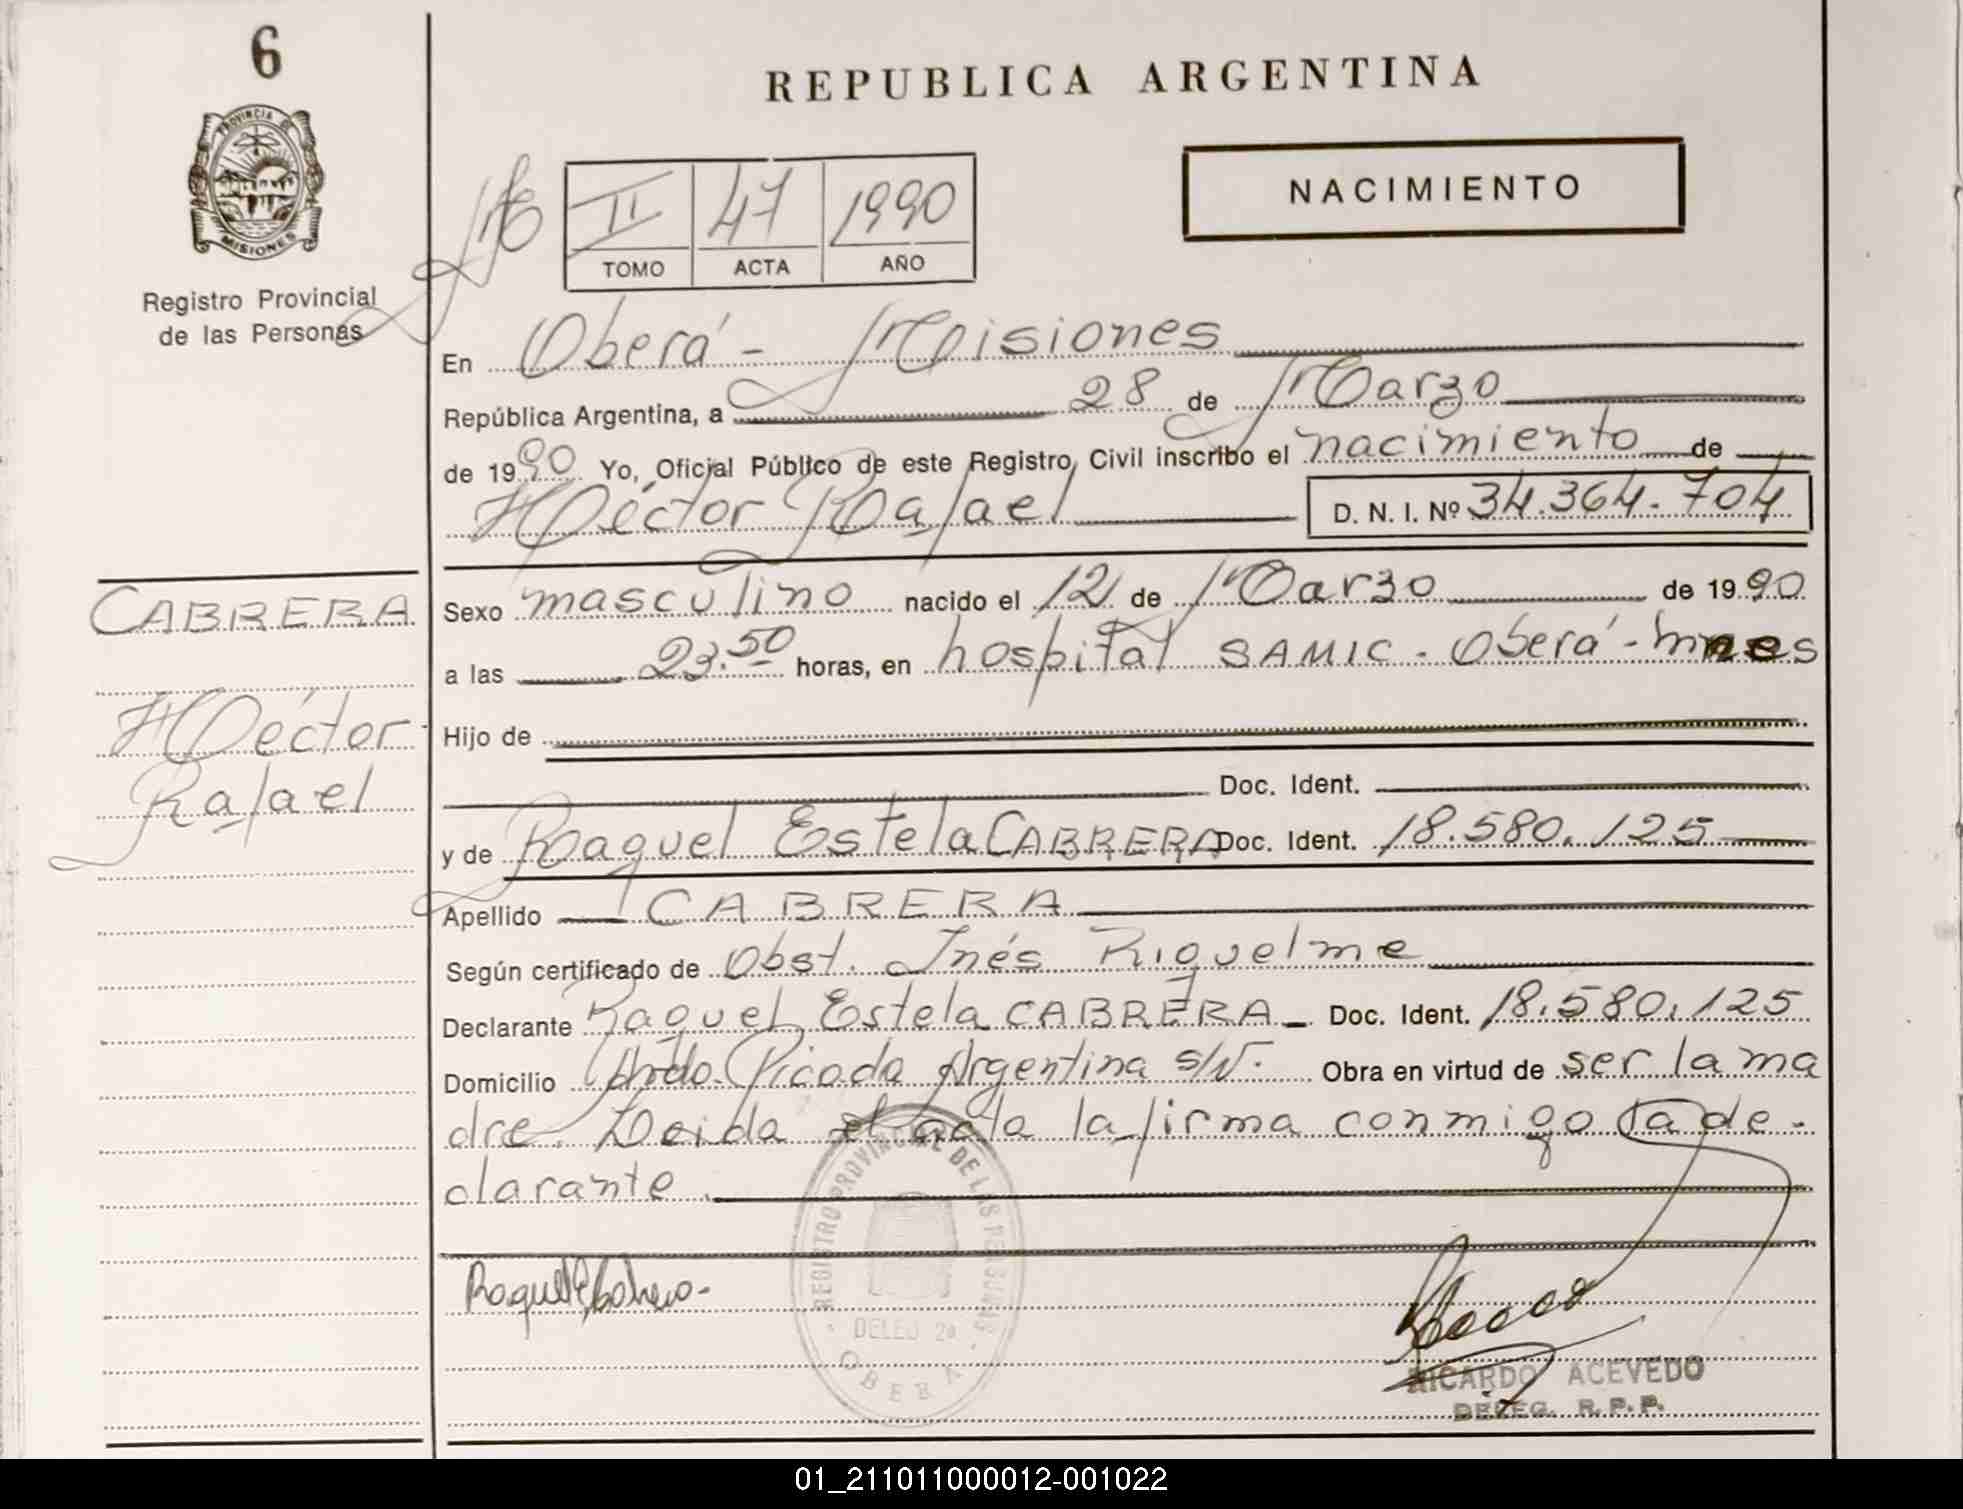 6
REPUBLICA ARGENTINA
PROVINCIA DE
MISIONES
Registro Provincial
de las Personas
NACIMIENTO
II 47 1990
TOMO ACTA AÑO
En Oberá - Misiones
República Argentina, a 28 de Marzo
de 1990 Yo, Oficial Público de este Registro Civil inscribo el nacimiento de
Héctor Rafael D. N. I. Nº 34.364.704
CABRERA
Héctor
Rafael
Sexo masculino nacido el 12 de Marzo de 1990
a las 23.50 horas, en hospital SAMIC - Oberá - Mnes
Hijo de
Doc. Ident.
y de Raquel Estela CABRERA Doc. Ident. 18.580.125
Apellido CABRERA
Según certificado de Obst. Inés Riquelme
Declarante Raquel Estela CABRERA Doc. Ident. 18.580.125
Domicilio Picada Argentina s/N. Obra en virtud de ser la ma
dre. Leída el acta la firma conmigo la de-
clarante.
REGISTRO PROVINCIAL DE LAS PERSONAS
DELEG 2a
OBERA
Raquel E Cabrera
RICARDO ACEVEDO
DELEG. R.P.P.
01_211011000012-001022